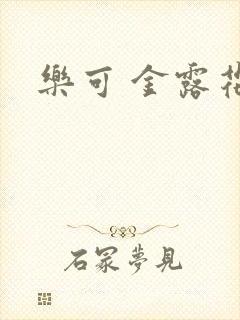 樂可 金露花
石冢夢見